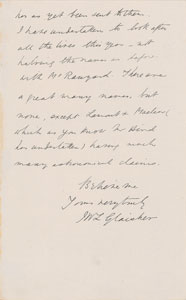 has as yet been sent to them.
I have undertaken to look after
all the lives this year - not
halving the names as before
with Mr Ranyard. There are
a great many names but
none, except Lamont & Maclear,
which as you know Mr Hind
has undertaken) having much
many astronomical claims.
Believe me
Yours very truly
JWL Glaisher